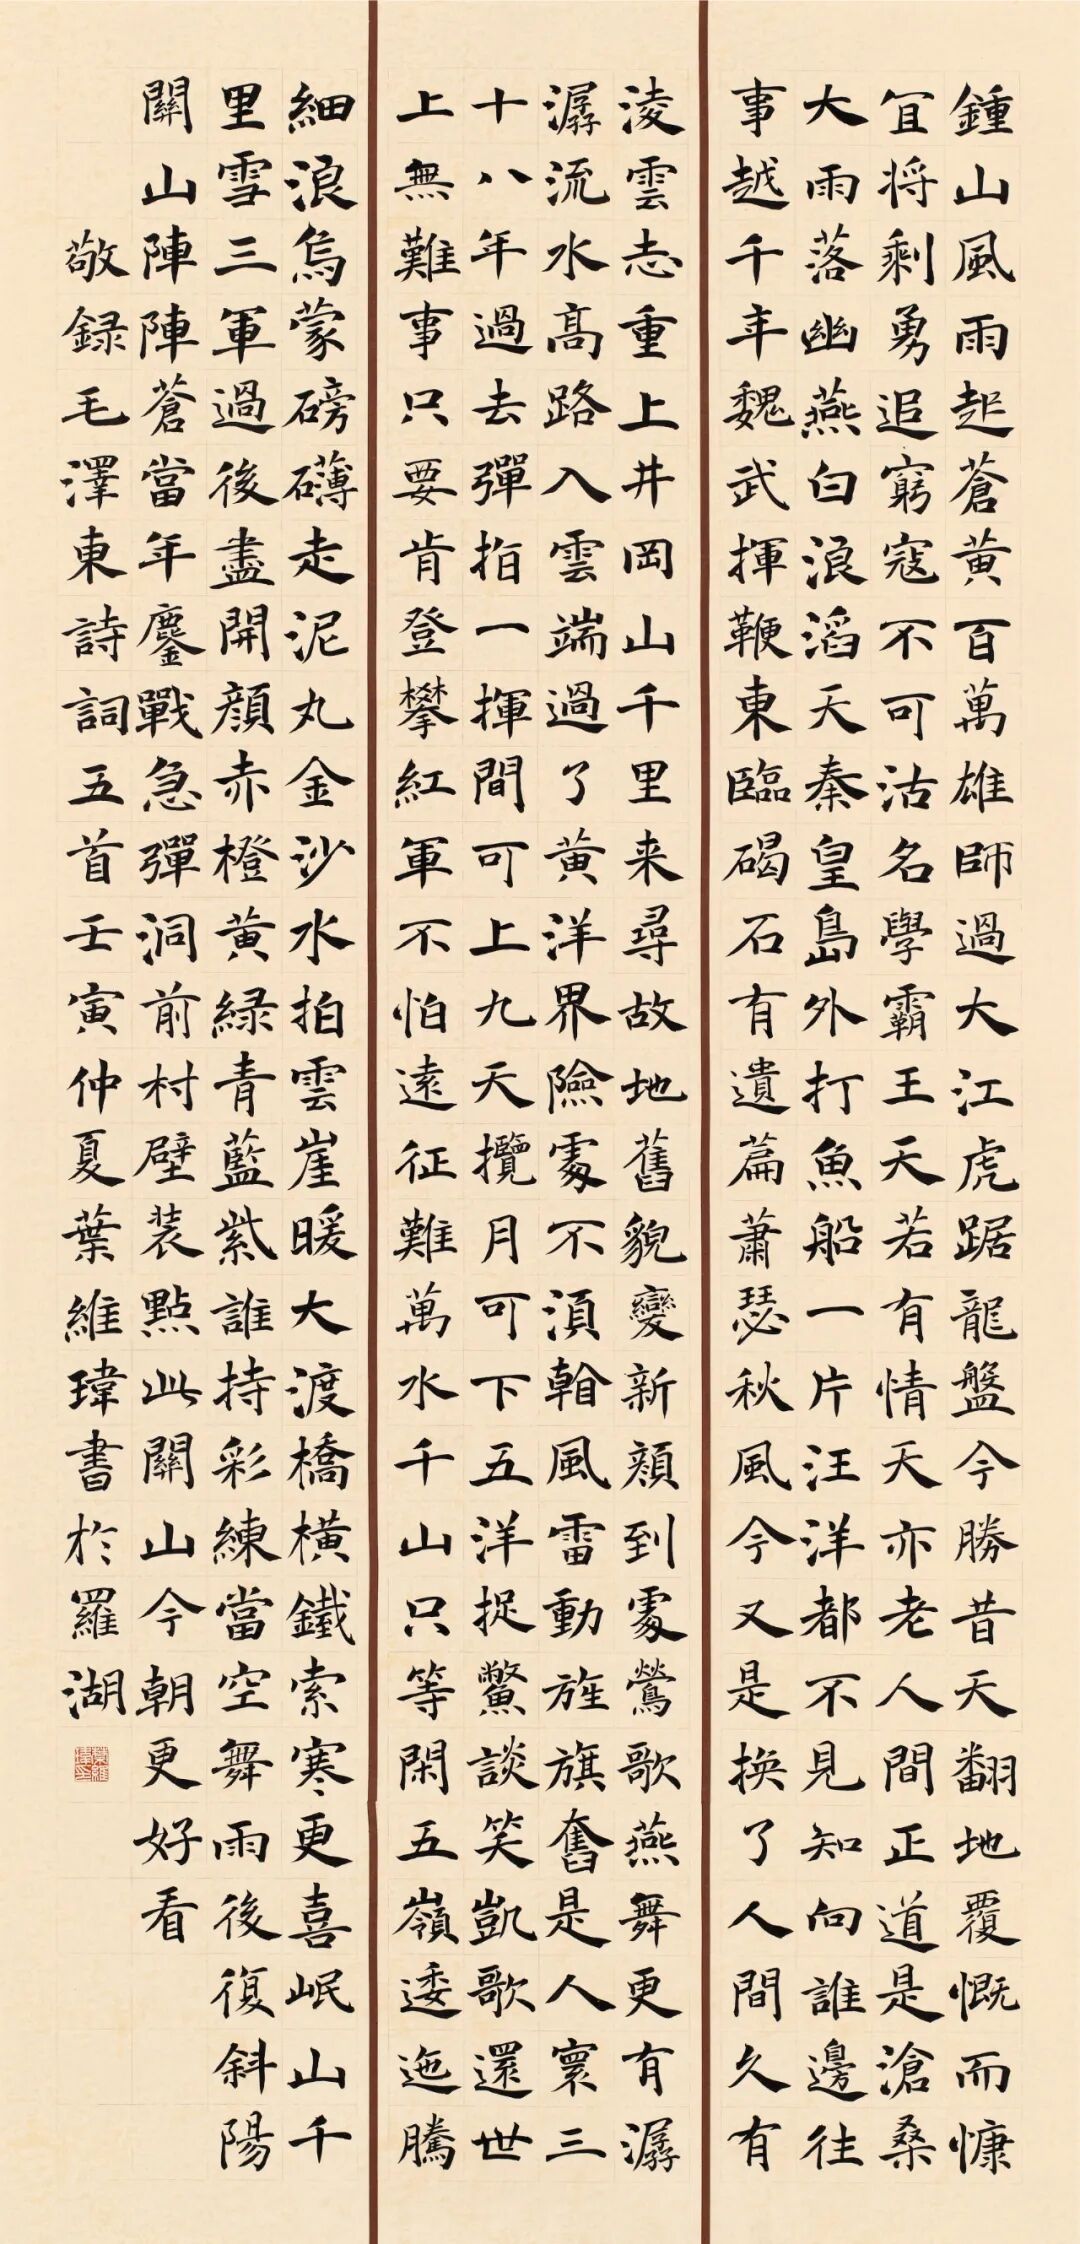 鍾山風雨起蒼黃百萬雄師過大江虎踞龍盤今勝昔天翻地覆慨而慷
宜将剩勇追窮寇不可沽名學霸王天若有情天亦老人間正道是滄桑
大雨落幽燕白浪滔天秦皇島外打魚船一片汪洋都不見知向誰邊往
事越千年魏武揮鞭東臨碣石有遺篇蕭瑟秋風今又是換了人間久有
淩雲志重上井岡山千里来尋故地舊貌變新顔到處鶯歌燕舞更有潺
潺流水高路入雲端過了黃洋界險處不須看風雷動旌旗奮是人寰三
十八年過去彈指一揮間可上九天攬月可下五洋捉鱉談笑凱歌還世
上無難事只要肯登攀紅軍不怕遠征難萬水千山只等閑五嶺逶迤騰
細浪烏蒙磅礴走泥丸金沙水拍雲崖暖大渡橋橫鐵索寒更喜岷山千
里雪三軍過後盡開顔赤橙黃綠青藍紫誰持彩練當空舞雨後復斜陽
關山陣陣蒼當年鏖戰急彈洞前村壁装點此關山今朝更好看
敬録毛澤東詩詞五首壬寅仲夏葉維瑋書於羅湖